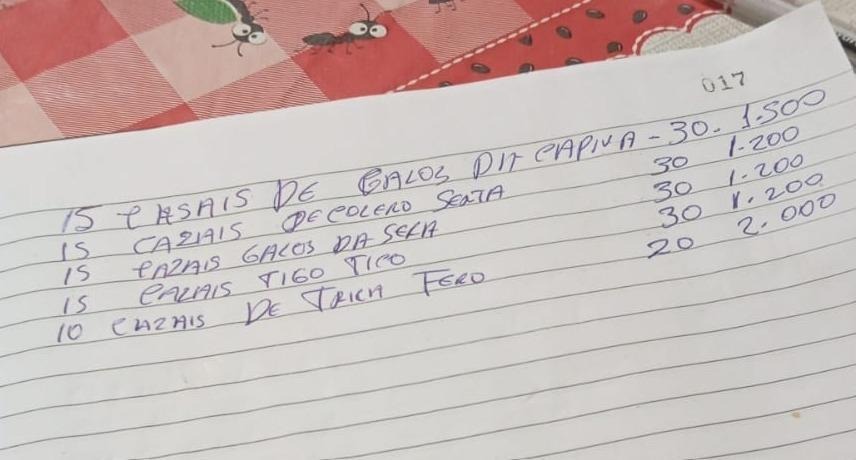 017
15 CASAIS DE GALOS DA CAPIVA - 30. 1.500
15 CAZAIS DE COLERO SENTA 30 1.200
15 CAZAIS GALOS DA SEKA 30 1.200
15 CAZAIS TIGO TICO 30 1.200
10 CAZAIS DE TRICA FERO 20 2.000